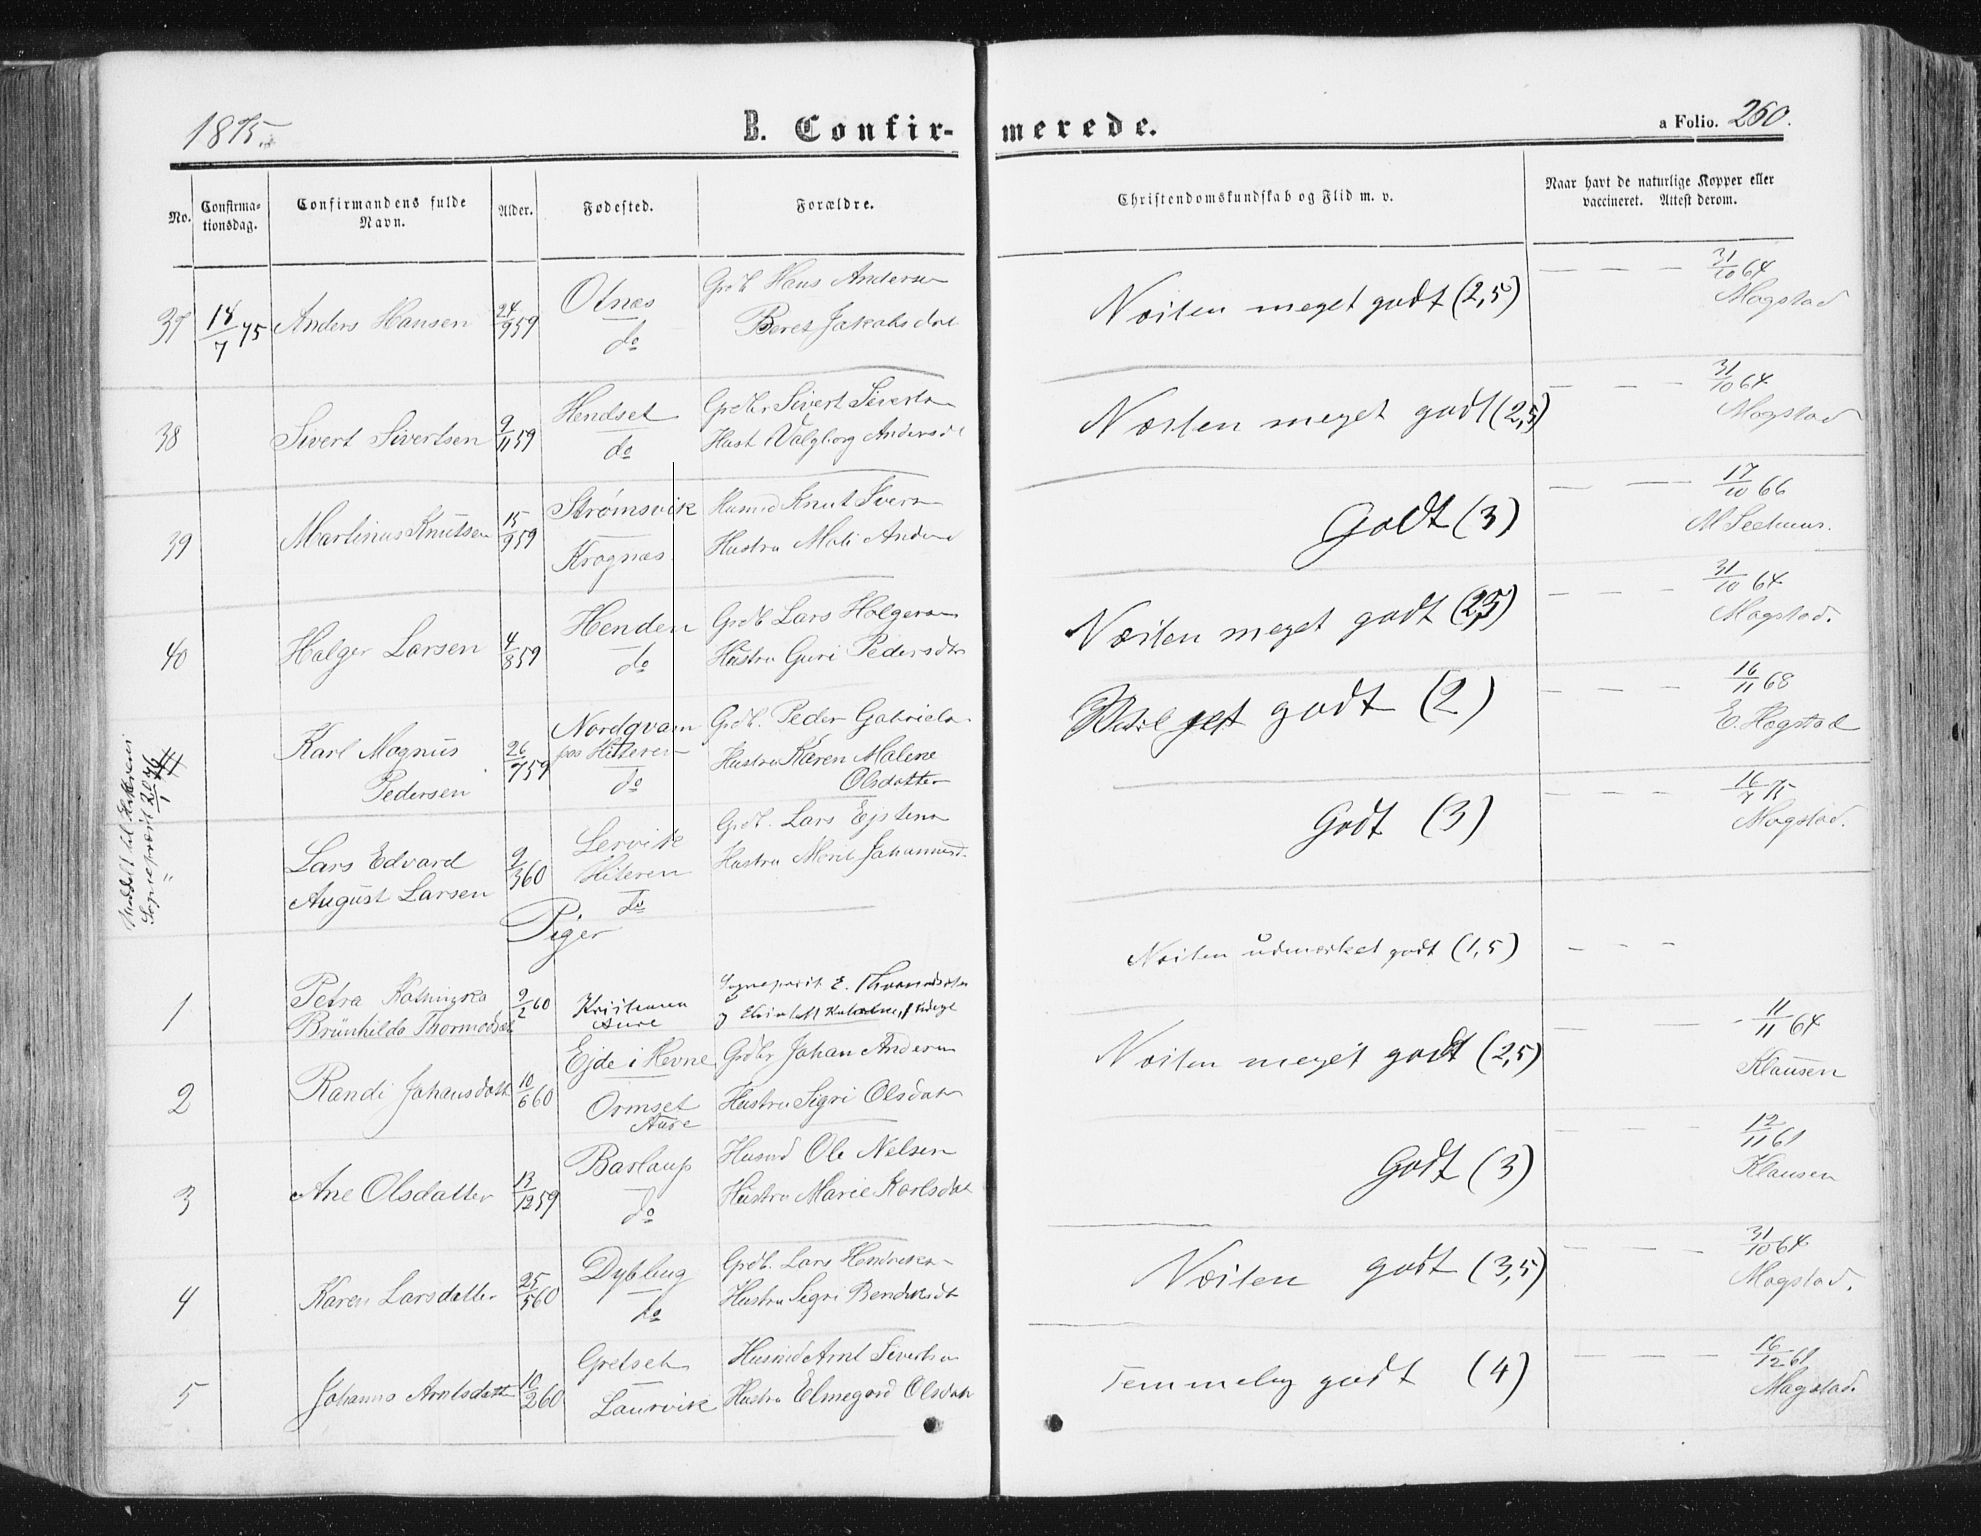 1875.
B. Confir-
merede.
a Folio. 260.
No.
Confirma-
tionsdag.
Confirmandens fulde
Navn.
Alder.
Fødested.
Forældre.
Christendomskundskab og Flid m. v.
Naar havt de naturlige Kopper eller
vaccineret. Attest derom.
37 18/7 75 Anders Hansen 24/9 59
Otnæs
do
Grdb Hans Andersen
Beret Jakobsdat
Næsten meget godt (2,5)
— — — 31/10 64
Mogstad
38 Sivert Sivertsen 9/11 59
Hendset
do
Grdbr Sivert Sivertsn
Hust Valgborg Andersd
Næsten meget godt (2,5)
— — — 31/10 64
Mogstad
39 Martinus Knutsen 15/9 59
Strømsvik
Krognæs
Husmd Knut Iversn
Hustru Mali Andersd
Godt (3)
— — — 17/10 66
M Seehuus.
40 Holger Larsen 4/8 59
Henden
do
Grdb Lars Holgersn
Hustru Guri Pedersdtr
Næsten meget godt (2,5)
— — — 31/10 64
Mogstad.
41
Karl Magnus
Pedersen
26/7 59
Nordqvam
paa Hiteren
do
Grdb. Peder Gabrielsn
Hustru Karen Malene
Olsdatter
Meget godt (2)
— — — 16/11 68
E. Hogstad
Meddelt til Hitteren
Sognepræst 20/1 76
"
Lars Edvard
August Larsen
9/3 60
Lervik
Hiteren
do
Grdb. Lars Ejstensn
Hustru Merit Johannesd.
Godt (3)
— — — 16/7 75
Mogstad.
Piger
1
Petra Kathinka
Brünhilda Thormodsæt
9/2 60
Kristiania
Aure
Sognepræst E. Thormodsæter
Næsten udmærket godt (1,5)
— — —
2 Randi Johansdatt 10/6 60
Ejde i Hevne
Ormset
Aure
Grdbr Johan Andersn
Hustru Sigri Olsdatr
Næsten meget godt (2,5)
— — — 11/11 64
Klausen
3 Ane Olsdatter 13/12 59
Barlaup
do
Husmd Ole Nelsen
Hustru Marie Karlsdat
Godt (3)
— — — 12/11 61
Klausen
4 Karen Larsdatter 25/5 60
Dybling
do
Grdb. Lars Hendriksn
Hustru Sigri Bendiksdt
Næsten godt (3,5)
— — — 31/10 64
Mogstad.
5 Johanna Arntsdatt 10/2 60
Gretset
Laurvik
Husmd Arnt Sivertsn
Hustru Elmegard Olsdatr
Temmelig godt (4)
— — — 16/12 61
Mogstad.